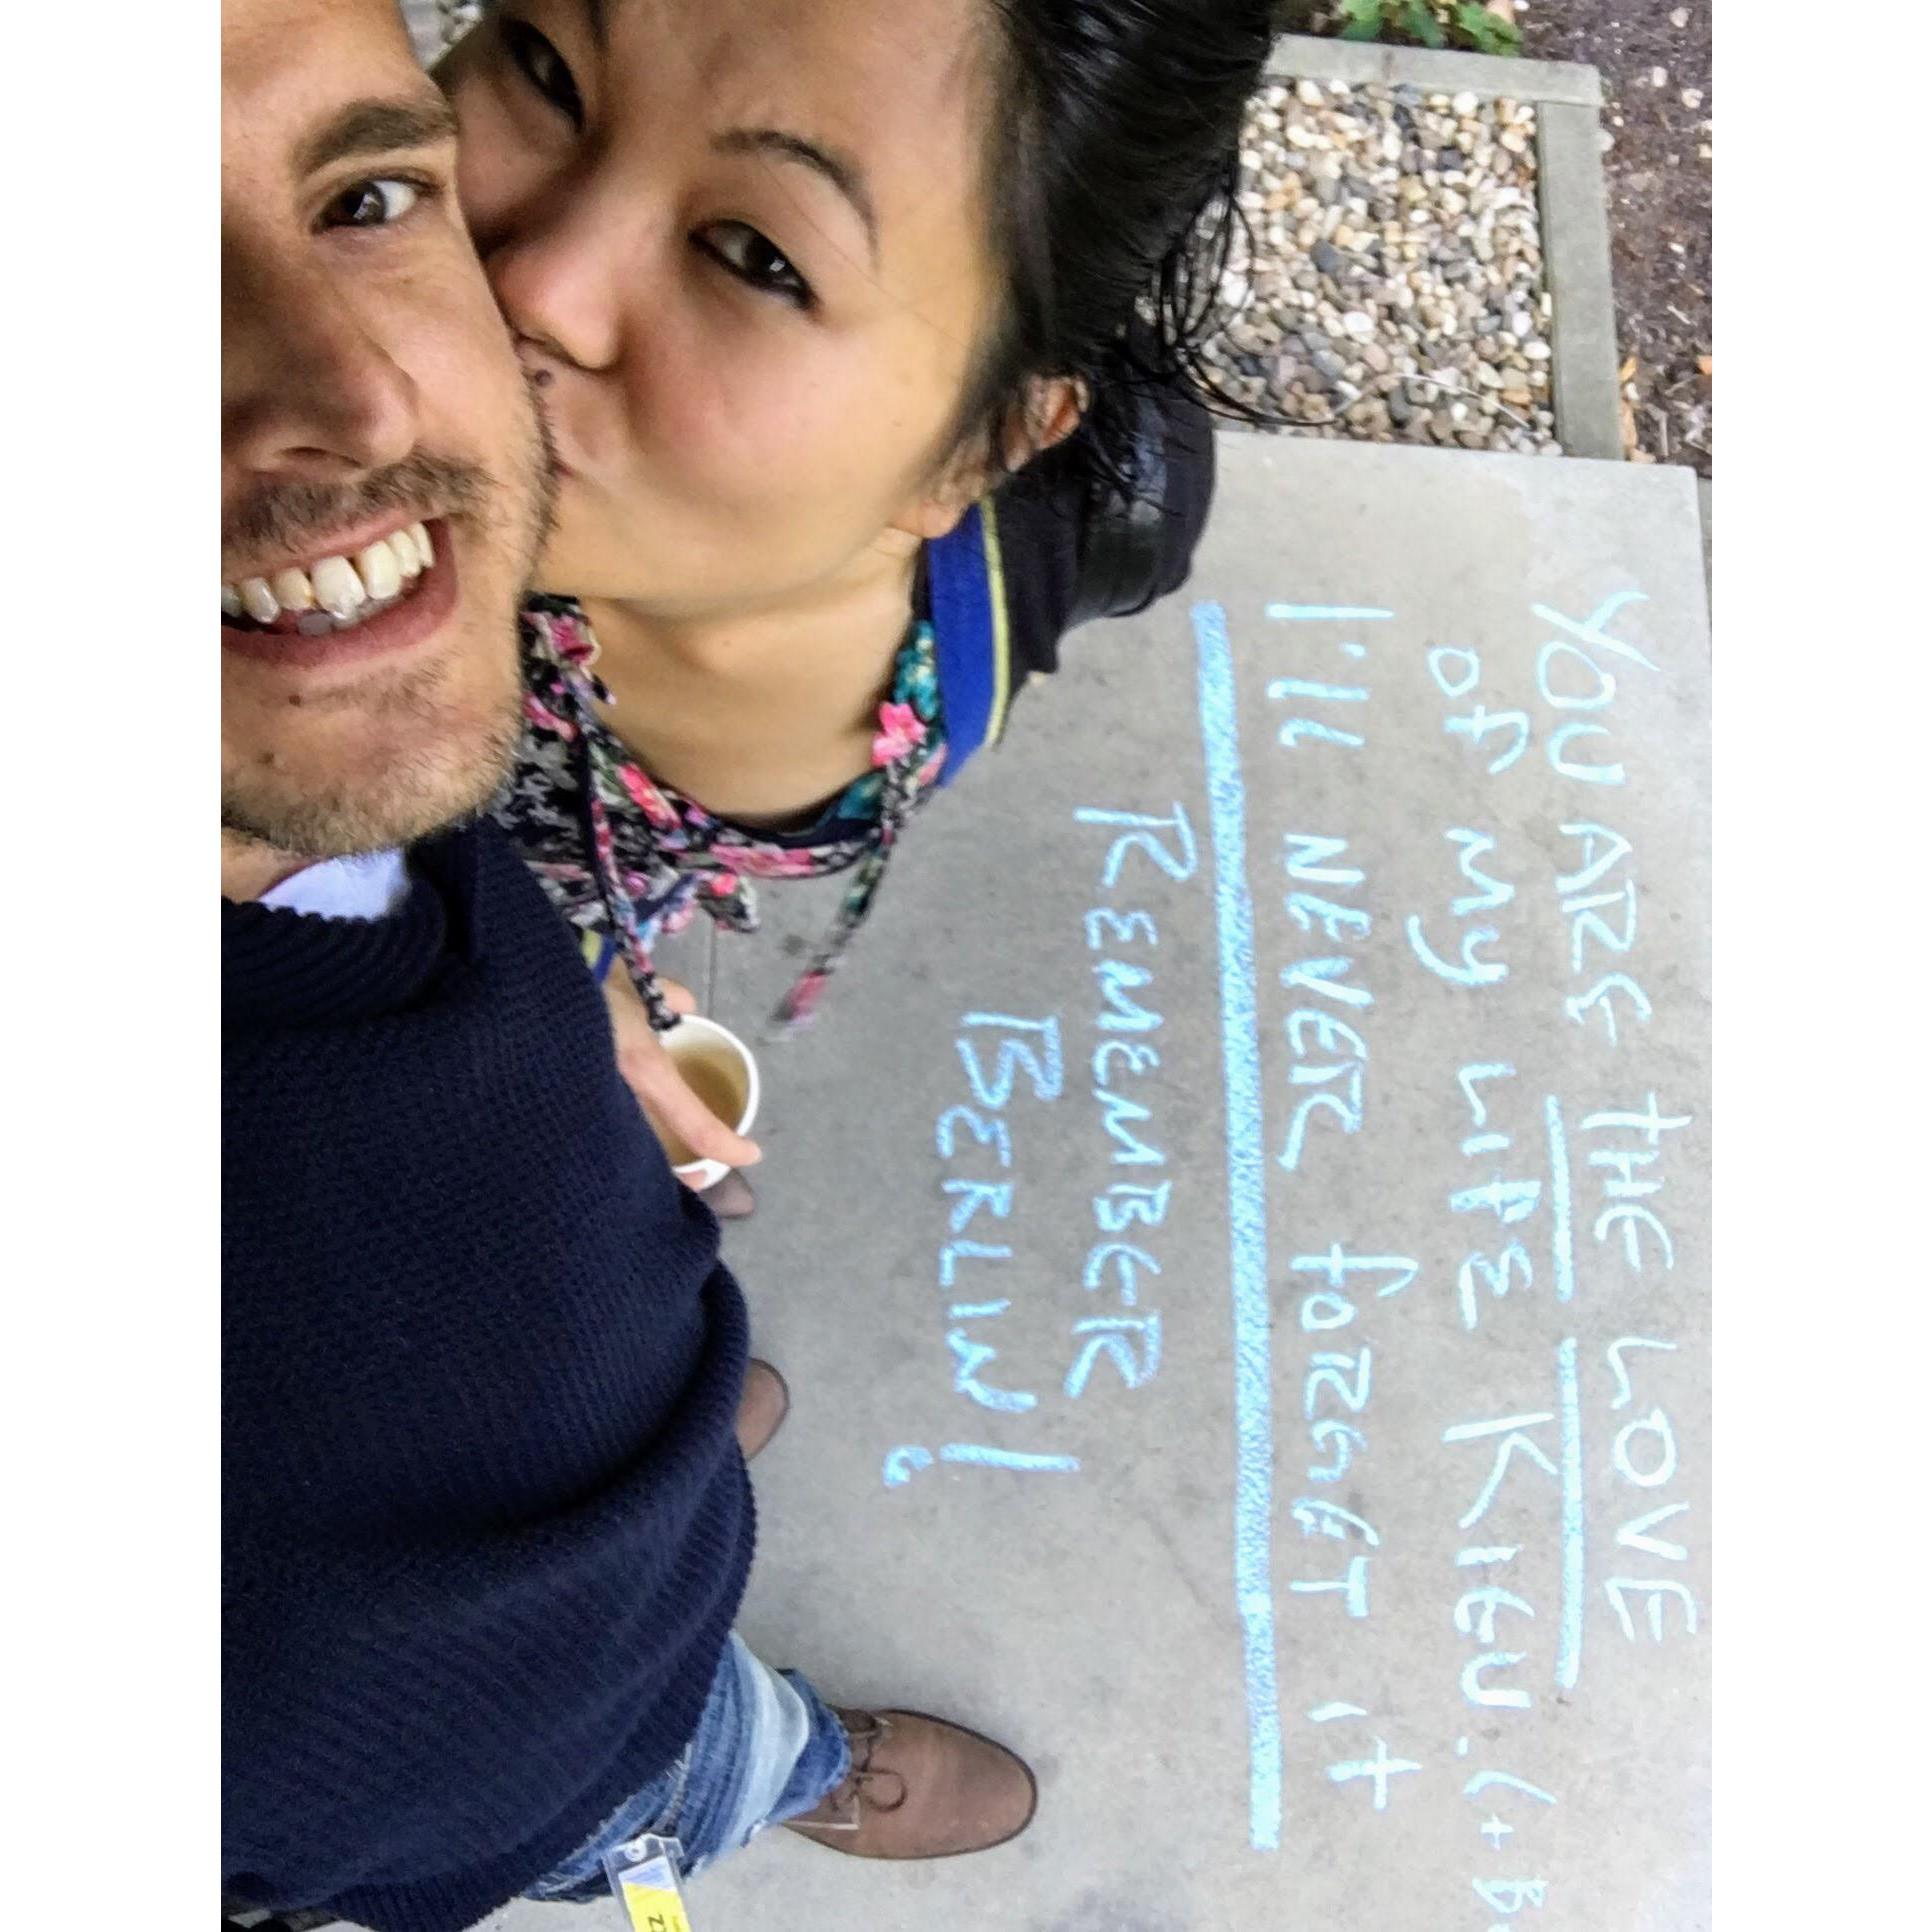 YOU ARE THE LOVE
of my LIFE KIGU. (+B
I'll NEVER forget it
REMEMBER
BERLIN!